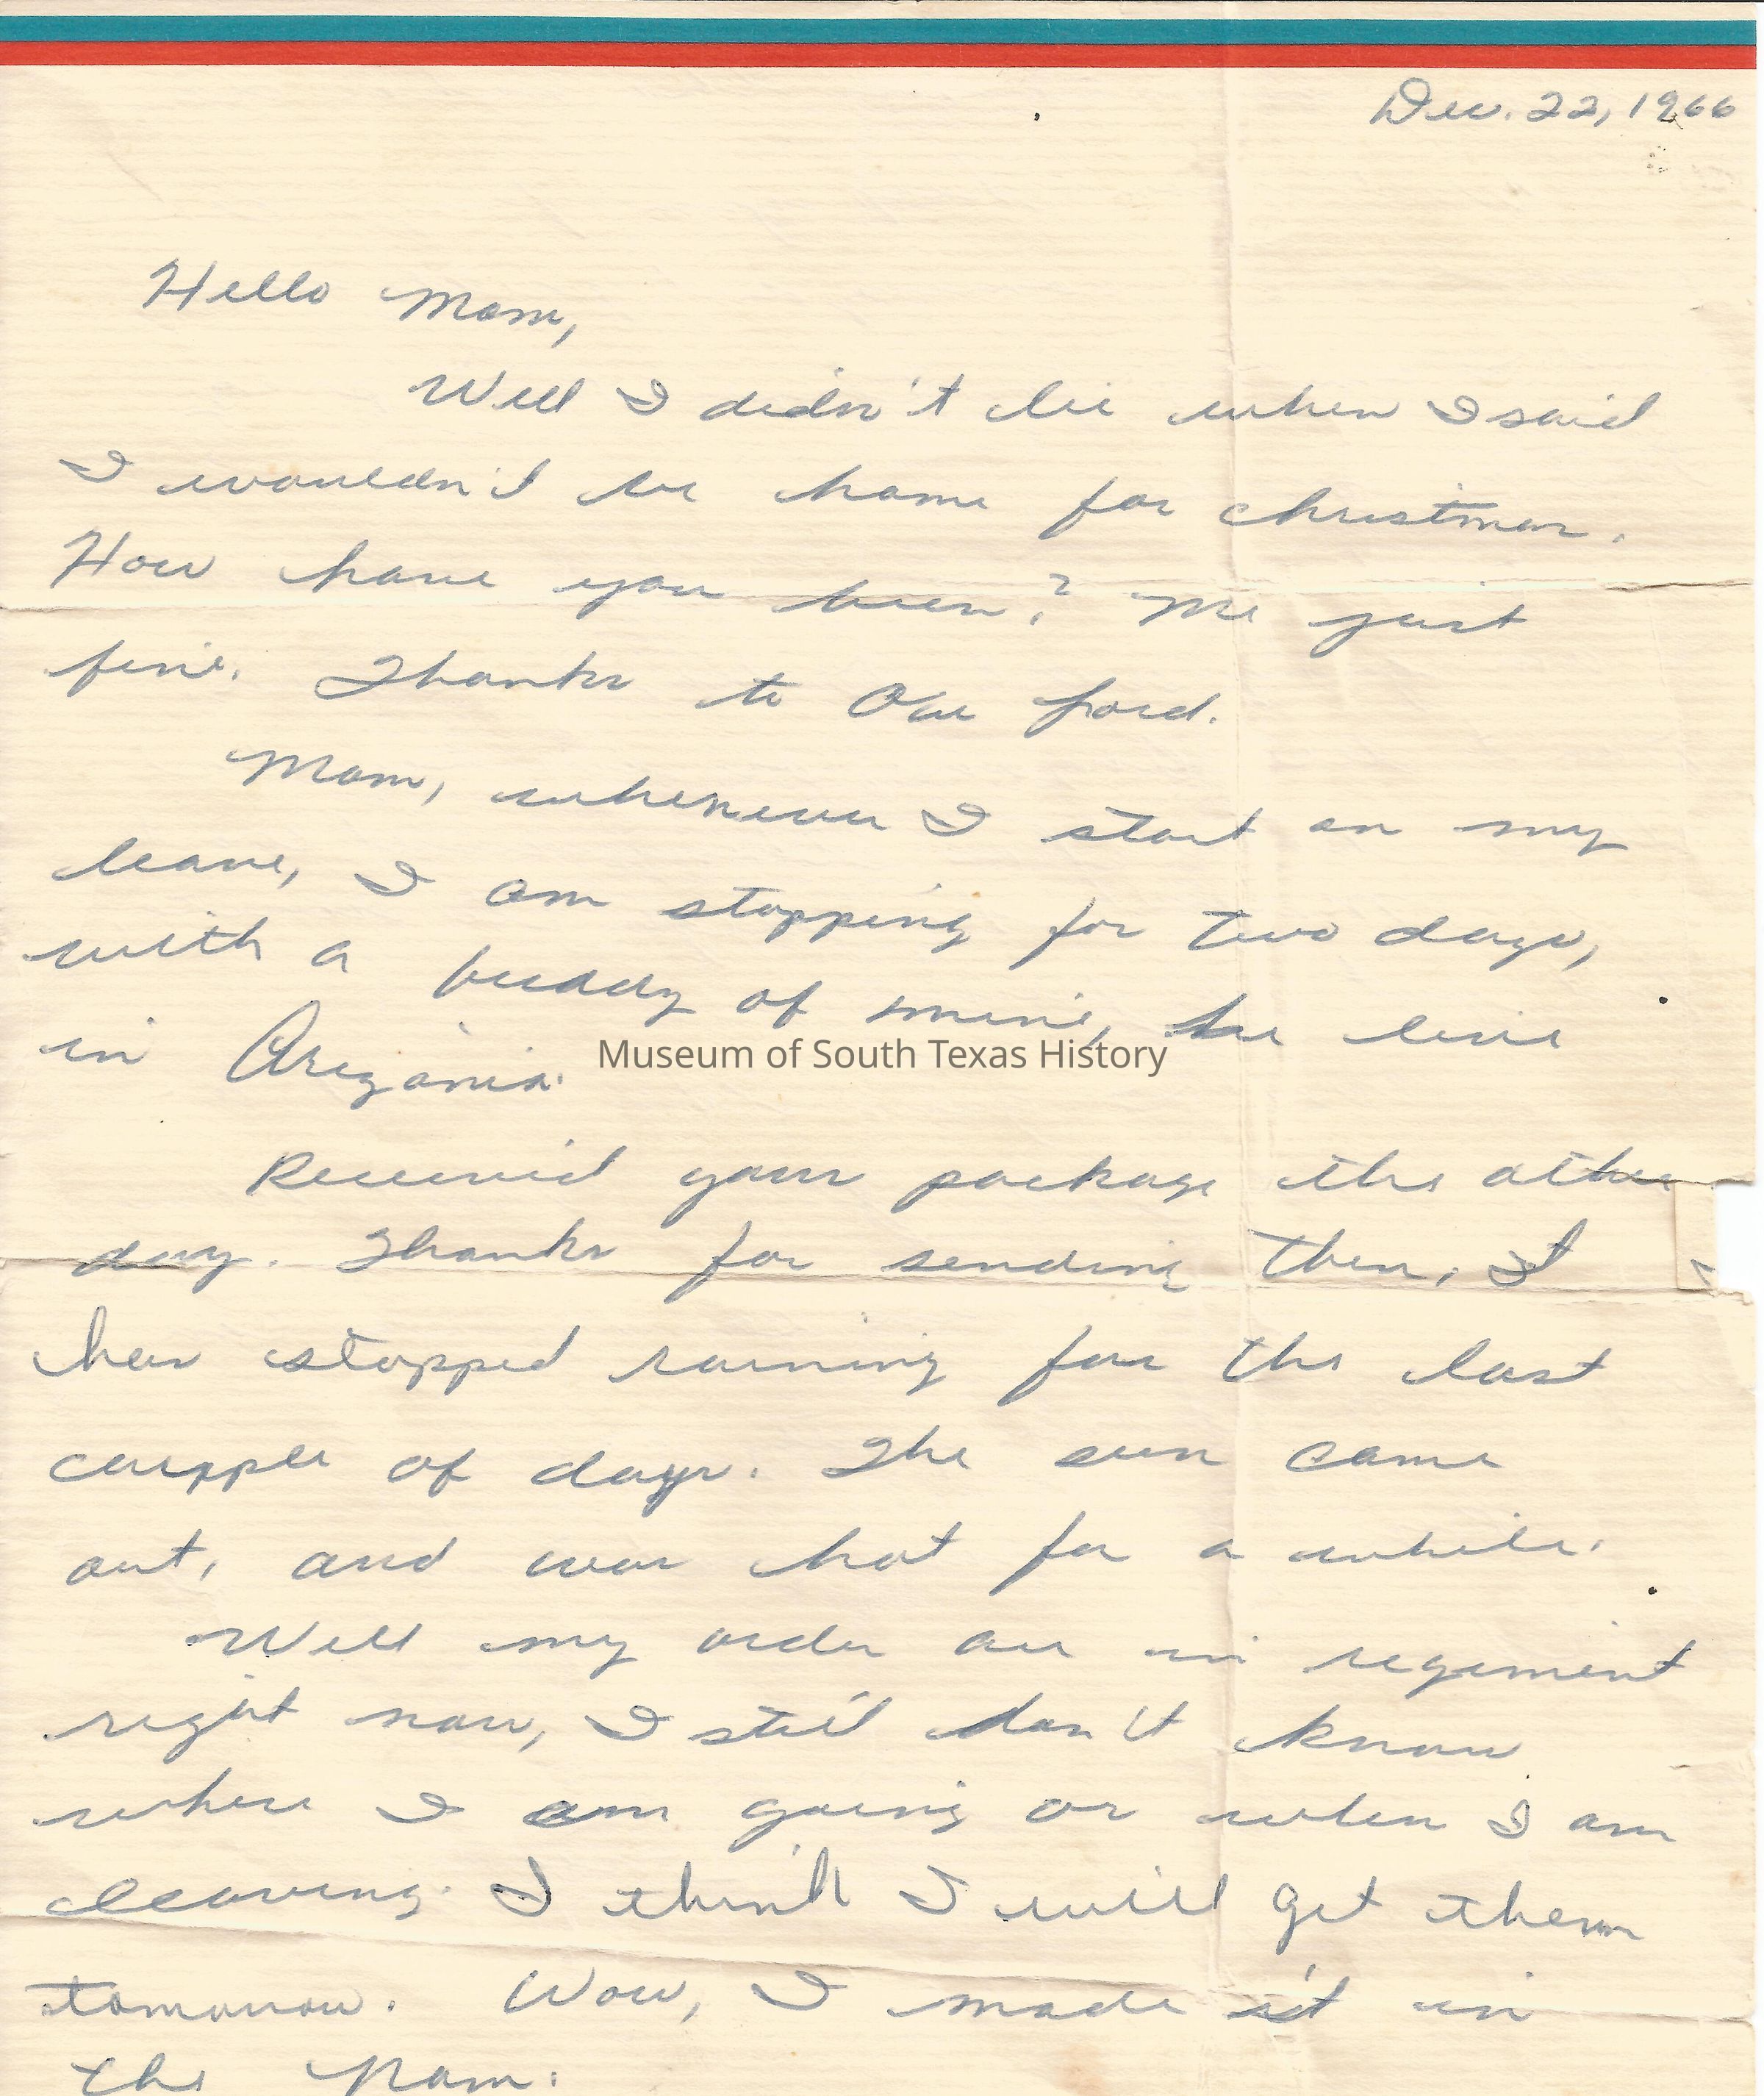 Dec. 22, 1966
Hello Mom,
Well I didn't lie when I said
I wouldn't be home for christmas.
How have you been? Me just
fine. Thanks to Our Lord.
Mom, whenever I start on my
leave, I am stopping for two days,
with a buddy of mine, he live
in Arizonia.
Received your package the other
day. Thanks for sending them. It
has stopped raining for the last
cupple of days. The sun came
out, and was hot for a while.
Well my order are in regiment
right now, I still don't know
where I am going or when I am
leaving. I think I will get them
tomorrow. Wow, I made it in
the Nam.
Museum of South Texas History